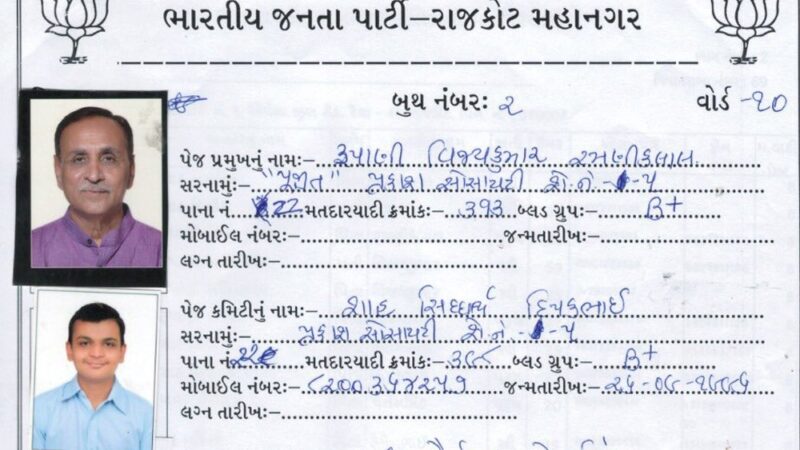 ભારતીય જનતા પાર્ટી–રાજકોટ મહાનગર
બુથ નંબરઃ ૨ વોર્ડ -૧૦
પેજ પ્રમુખનું નામઃ– રૂપાણી વિજયકુમાર રમણીકલાલ
સરનામુંઃ– પ્રકાશ સોસાયટી શે.નં. -૫
પાના નં 22 મતદારયાદી ક્રમાંકઃ– ૩૧૩ બ્લડ ગ્રુપઃ– B+
મોબાઈલ નંબરઃ– જન્મતારીખઃ–
લગ્ન તારીખઃ–
પેજ કમિટીનું નામઃ– શાહ સિધ્ધાર્થ દિપકભાઈ
સરનામુંઃ– પ્રકાશ સોસાયટી શે.નં. -૫
પાના નં મતદારયાદી ક્રમાંકઃ– બ્લડ ગ્રુપઃ– B+
મોબાઈલ નંબરઃ– જન્મતારીખઃ–
લગ્ન તારીખઃ–